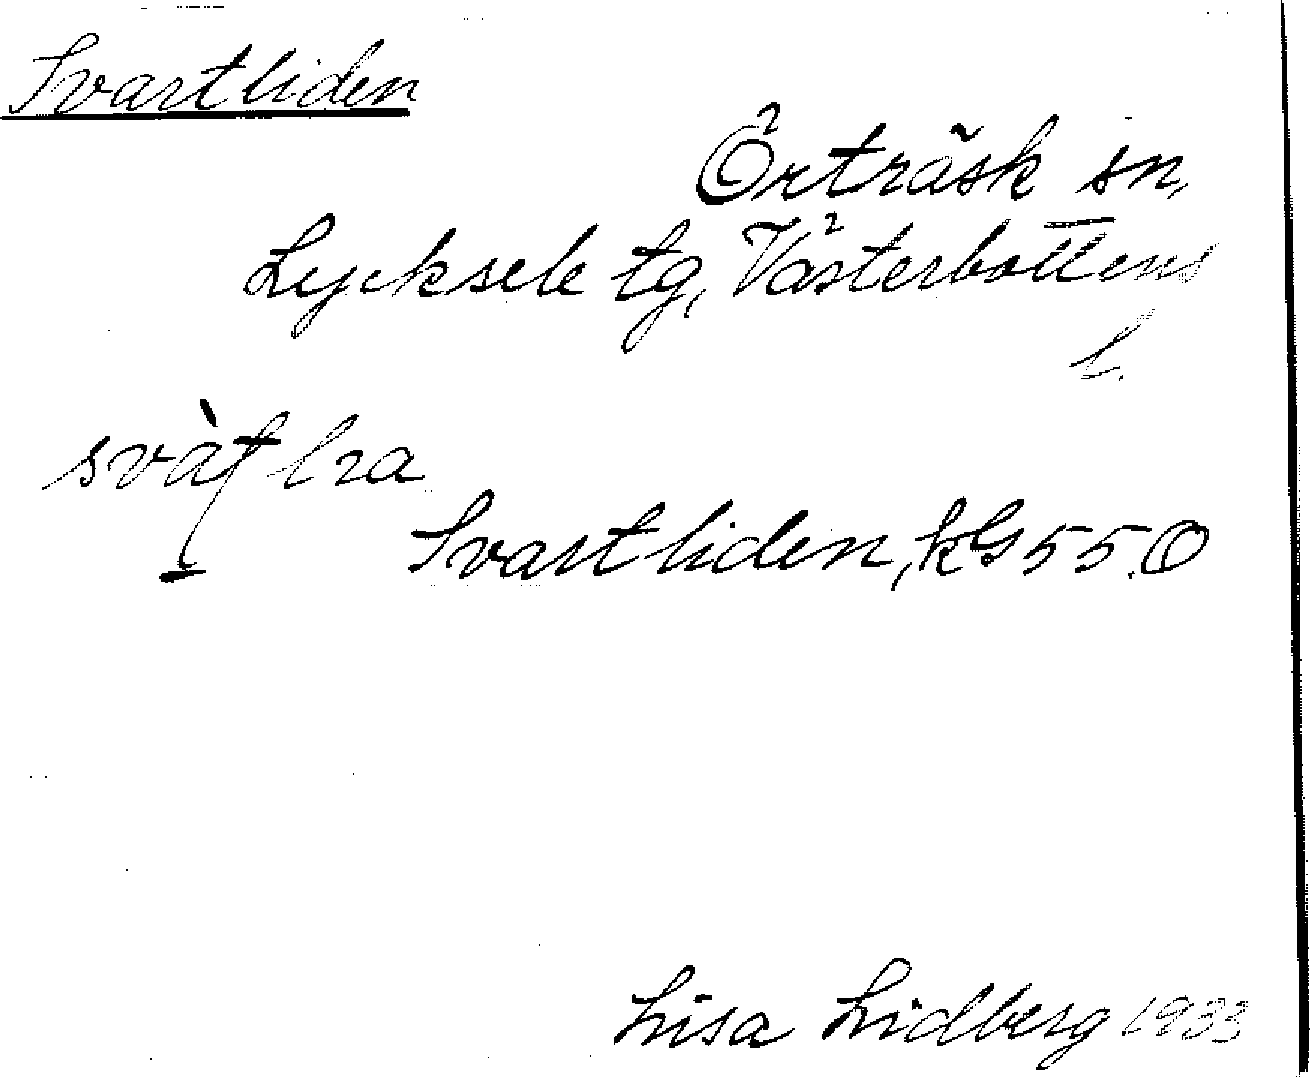 Svartliden
Örträsk sn,
Lycksele tg, Västerbottens
l.
Svartliden, kG 55.O
Lisa Lidberg 1933